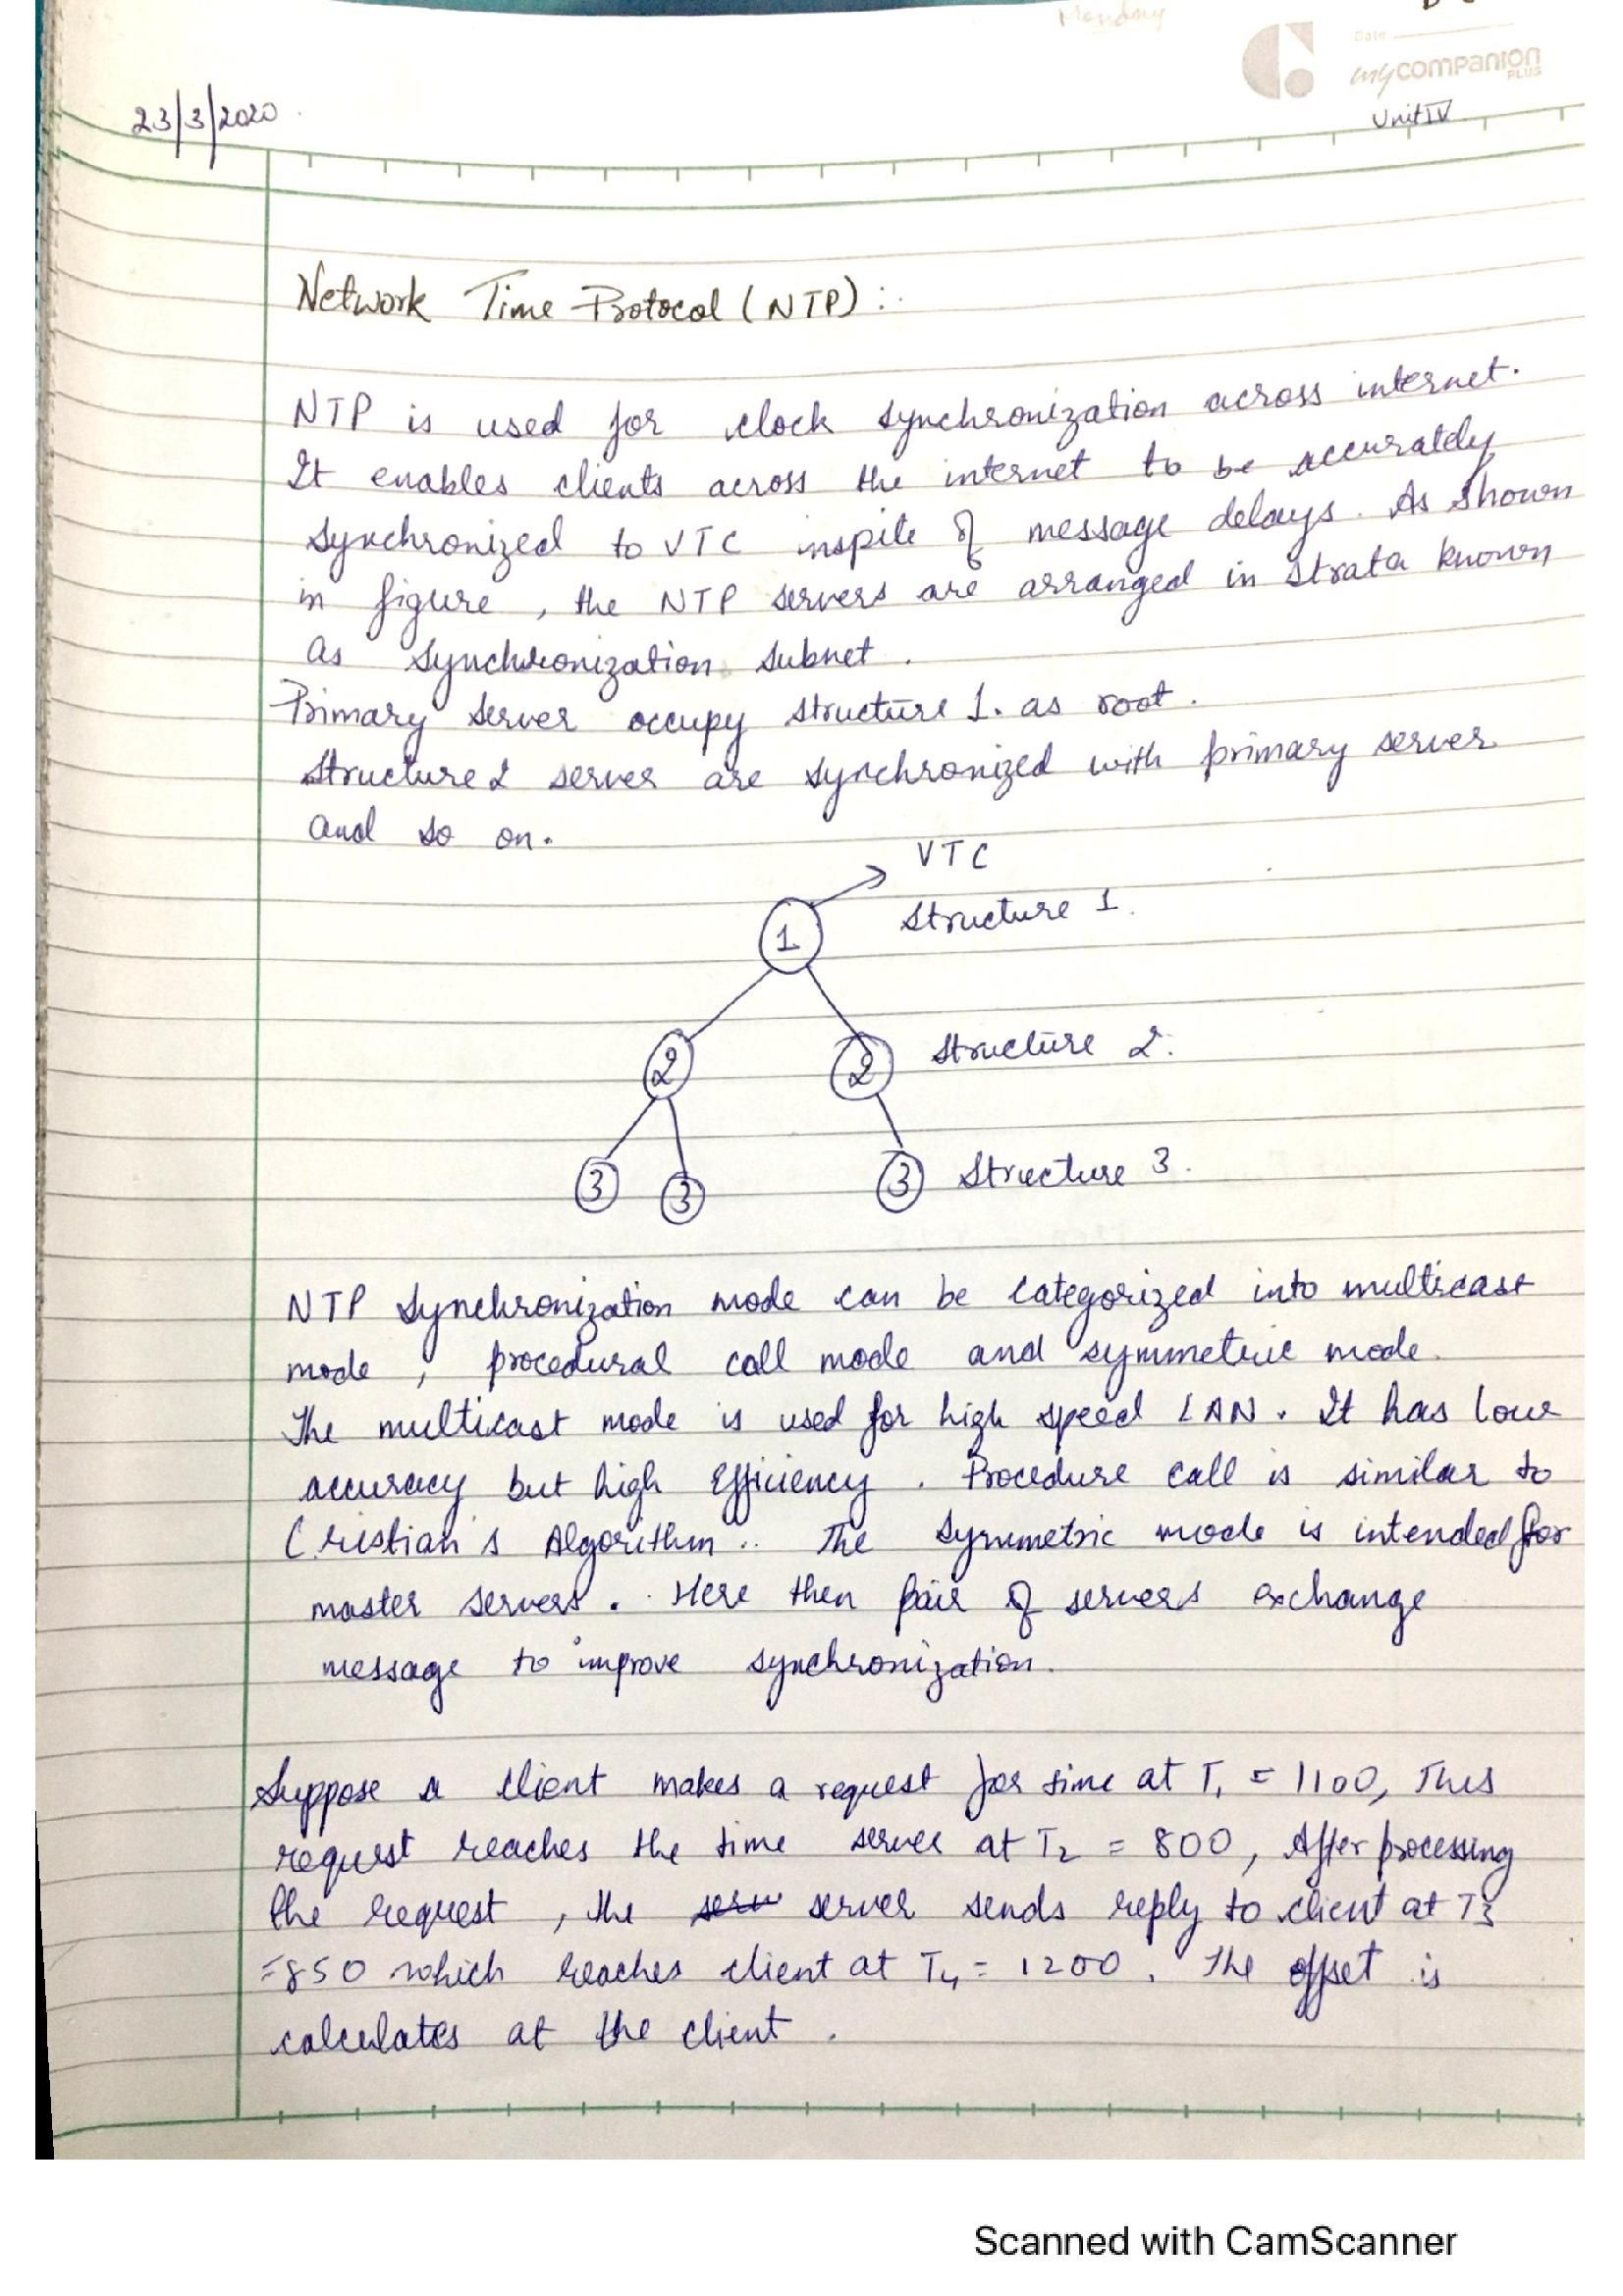 Monday
Date
mycompanion
PLUS
23/3/2020
Unit IV
Network Time Protocol (NTP) :
NTP is used for clock synchronization across internet.
It enables clients across the internet to be accurately
synchronized to VTC inspite of message delays. As shown
in figure, the NTP servers are arranged in strata known
as synchronization subnet.
Primary server occupy structure 1. as root.
structure 2 server are synchronized with primary server
and so on.
VTC
1 structure 1.
2 2 structure 2.
3 3 3 structure 3.
NTP synchronization mode can be categorized into multicast
mode, procedural call mode and symmetric mode.
The multicast mode is used for high speed LAN. It has low
accuracy but high Efficiency. Procedure call is similar to
Cristian's Algorithm.. The symmetric mode is intended for
master servers. Here then pair of servers exchange
message to improve synchronization.
Suppose a client makes a request for time at T1 = 1100, This
request reaches the time server at T2 = 800, After processing
the request, the server sends reply to client at T3
=850 which reaches client at T4 = 1200. The offset is
calculates at the client.
Scanned with CamScanner